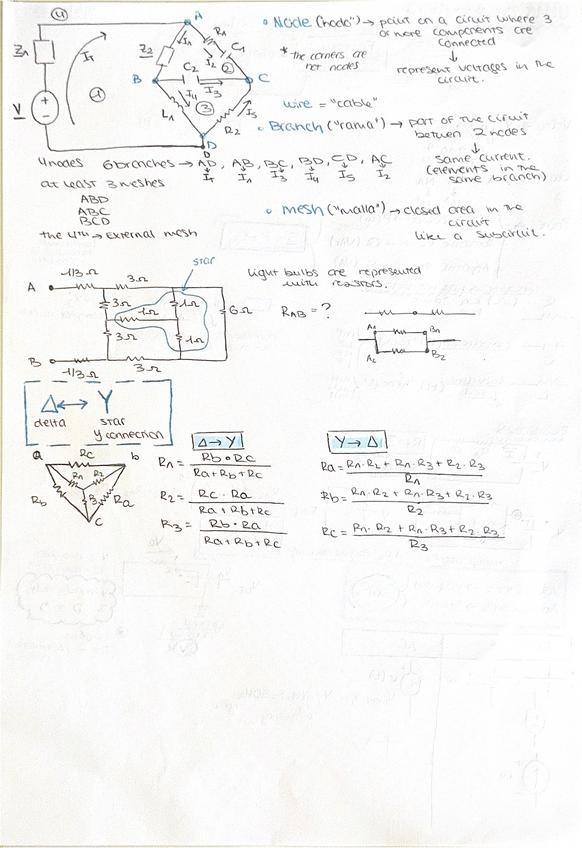 4
A
Z1
IT
1
V
+
-
Z2
I1
R1
C1
I2
2
B
C2
I3
C
I4
3
L1
I5
R2
D
D
• Node ("nodo") → point on a circuit where 3
or more components are
connected
↓
represent voltages in the
circuit.
* the corners are
not nodes
wire = "cable"
• Branch ("rama") → part of the circuit
between 2 nodes
↓
same current.
(elements in the
same branch)
4 nodes 6 branches → AD, AB, BC, BD, CD, AC
IT I1 I3 I4 I5 I2
at least 3 meshes
ABD
ABC
BCD
the 4TH → External mesh
• mesh ("malla") → closed area in the
circuit
like a subcircuit.
star
A
-1/3 Ω
3 Ω
3 Ω
1 Ω
1 Ω
6 Ω
3 Ω
1 Ω
B
-1/3 Ω
3 Ω
light bulbs are represented
with resistors.
RAB = ?
A1
B1
A2
B2
Δ ↔ Y
delta
star
y connection
a
Rc
b
R1
R2
Rb
R3
Ra
c
Δ → Y
R1 = Rb · Rc / Ra + Rb + Rc
R2 = Rc · Ra / Ra + Rb + Rc
R3 = Rb · Ra / Ra + Rb + Rc
Y → Δ
Ra = R1 · R2 + R1 · R3 + R2 · R3 / R1
Rb = R1 · R2 + R1 · R3 + R2 · R3 / R2
Rc = R1 · R2 + R1 · R3 + R2 · R3 / R3